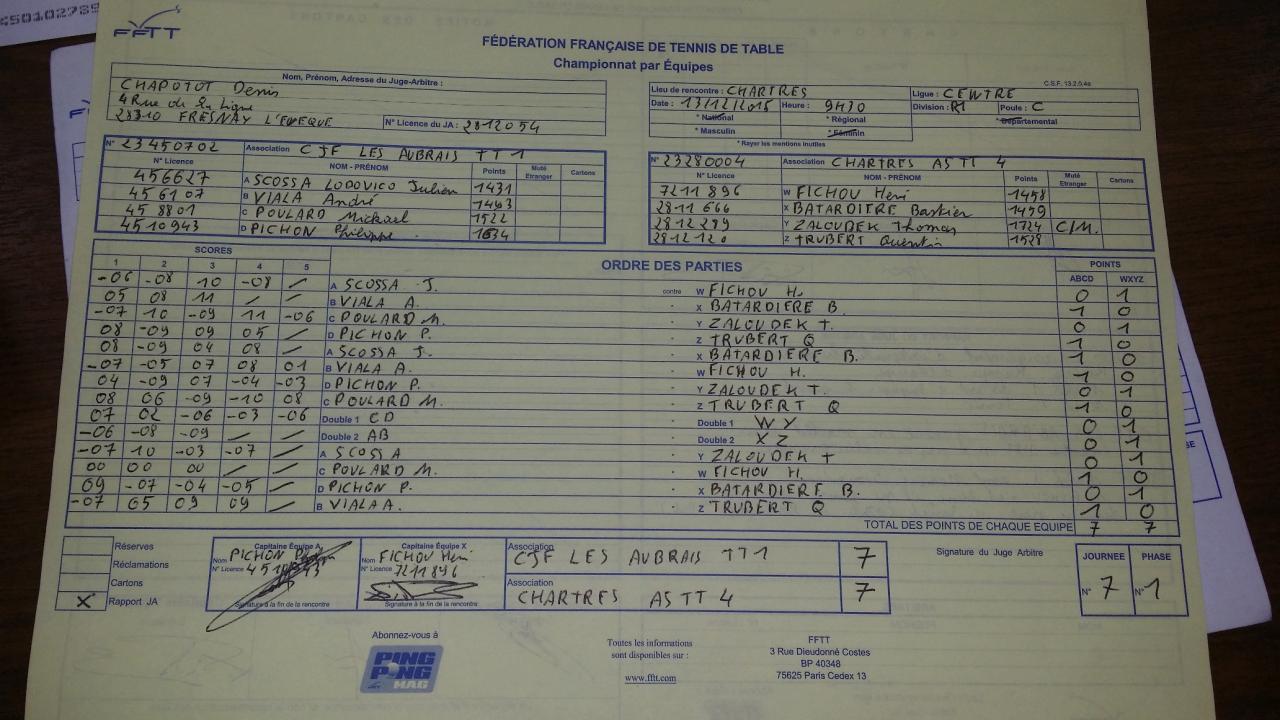 450102789
FFTT
FÉDÉRATION FRANÇAISE DE TENNIS DE TABLE
Championnat par Équipes
C.S.F. 13.2.0.4e
Nom, Prénom, Adresse du Juge-Arbitre :
CHAPOTOT Denis
4 Rue de la Ligne
28310 FRESNAY L'EVEQUE
N° Licence du JA : 2812054
Lieu de rencontre : CHARTRES Ligue : CENTRE
Date : 13/12/2015 Heure : 9H30 Division : R1 Poule : C
* National * Régional * Départemental
* Masculin * Féminin
* Rayer les mentions inutiles
N° 23450702 Association CJF LES AUBRAIS TT 1
N° Licence NOM - PRÉNOM Points Muté Etranger Cartons
456627 A SCOSSA LODOVICO Julien 1431
456107 B VIALA André 1463
458801 C POULARD Mickael 1522
4510943 D PICHON Philippe 1634
N° 23280004 Association CHARTRES ASTT 4
N° Licence NOM - PRÉNOM Points Muté Etranger Cartons
7211896 W FICHOU Henri 1458
2811666 X BATARDIERE Bastien 1479
2812289 Y ZALOUDEK Thomas 1724 C/M.
2812120 Z TRUBERT Quentin 1528
SCORES ORDRE DES PARTIES POINTS
1 2 3 4 5 ABCD WXYZ
-06 -08 10 -08 / A SCOSSA J. contre W FICHOU H. 0 1
05 08 11 / / B VIALA A. - X BATARDIERE B. 1 0
-07 10 -09 11 -06 C POULARD M. - Y ZALOUDEK T. 0 1
08 -09 09 05 / D PICHON P. - Z TRUBERT Q 1 0
08 -09 04 08 / A SCOSSA J. - X BATARDIERE B. 1 0
-07 -05 07 08 01 B VIALA A. - W FICHOU H. 1 0
04 -09 07 -04 -03 D PICHON P. - Y ZALOUDEK T. 0 1
08 06 -09 -10 08 C POULARD M. - Z TRUBERT Q 1 0
07 02 -06 -03 -06 Double 1 CD - Double 1 WY 0 1
-06 -08 -09 / / Double 2 AB - Double 2 XZ 0 1
-07 10 -03 -07 / A SCOSSA - Y ZALOUDEK T 0 1
00 00 00 / / C POULARD M. - W FICHOU H. 1 0
09 -07 -04 -05 / D PICHON P. - X BATARDIERE B. 0 1
-07 05 09 09 / B VIALA A. - Z TRUBERT Q 1 0
TOTAL DES POINTS DE CHAQUE EQUIPE 7 7
Réserves
Réclamations
Cartons
X Rapport JA
Capitaine Équipe A
Nom PICHON
N° Licence
Signature à la fin de la rencontre
Capitaine Équipe X
Nom FICHOU Henri
N° Licence 7211896
Signature à la fin de la rencontre
Association CJF LES AUBRAIS TT1 7
Association CHARTRES ASTT 4 7
Signature du Juge Arbitre
JOURNEE PHASE
N° 7 N° 1
Abonnez-vous à
PING PONG MAG
Toutes les informations
sont disponibles sur :
www.fftt.com
FFTT
3 Rue Dieudonné Costes
BP 40348
75625 Paris Cedex 13